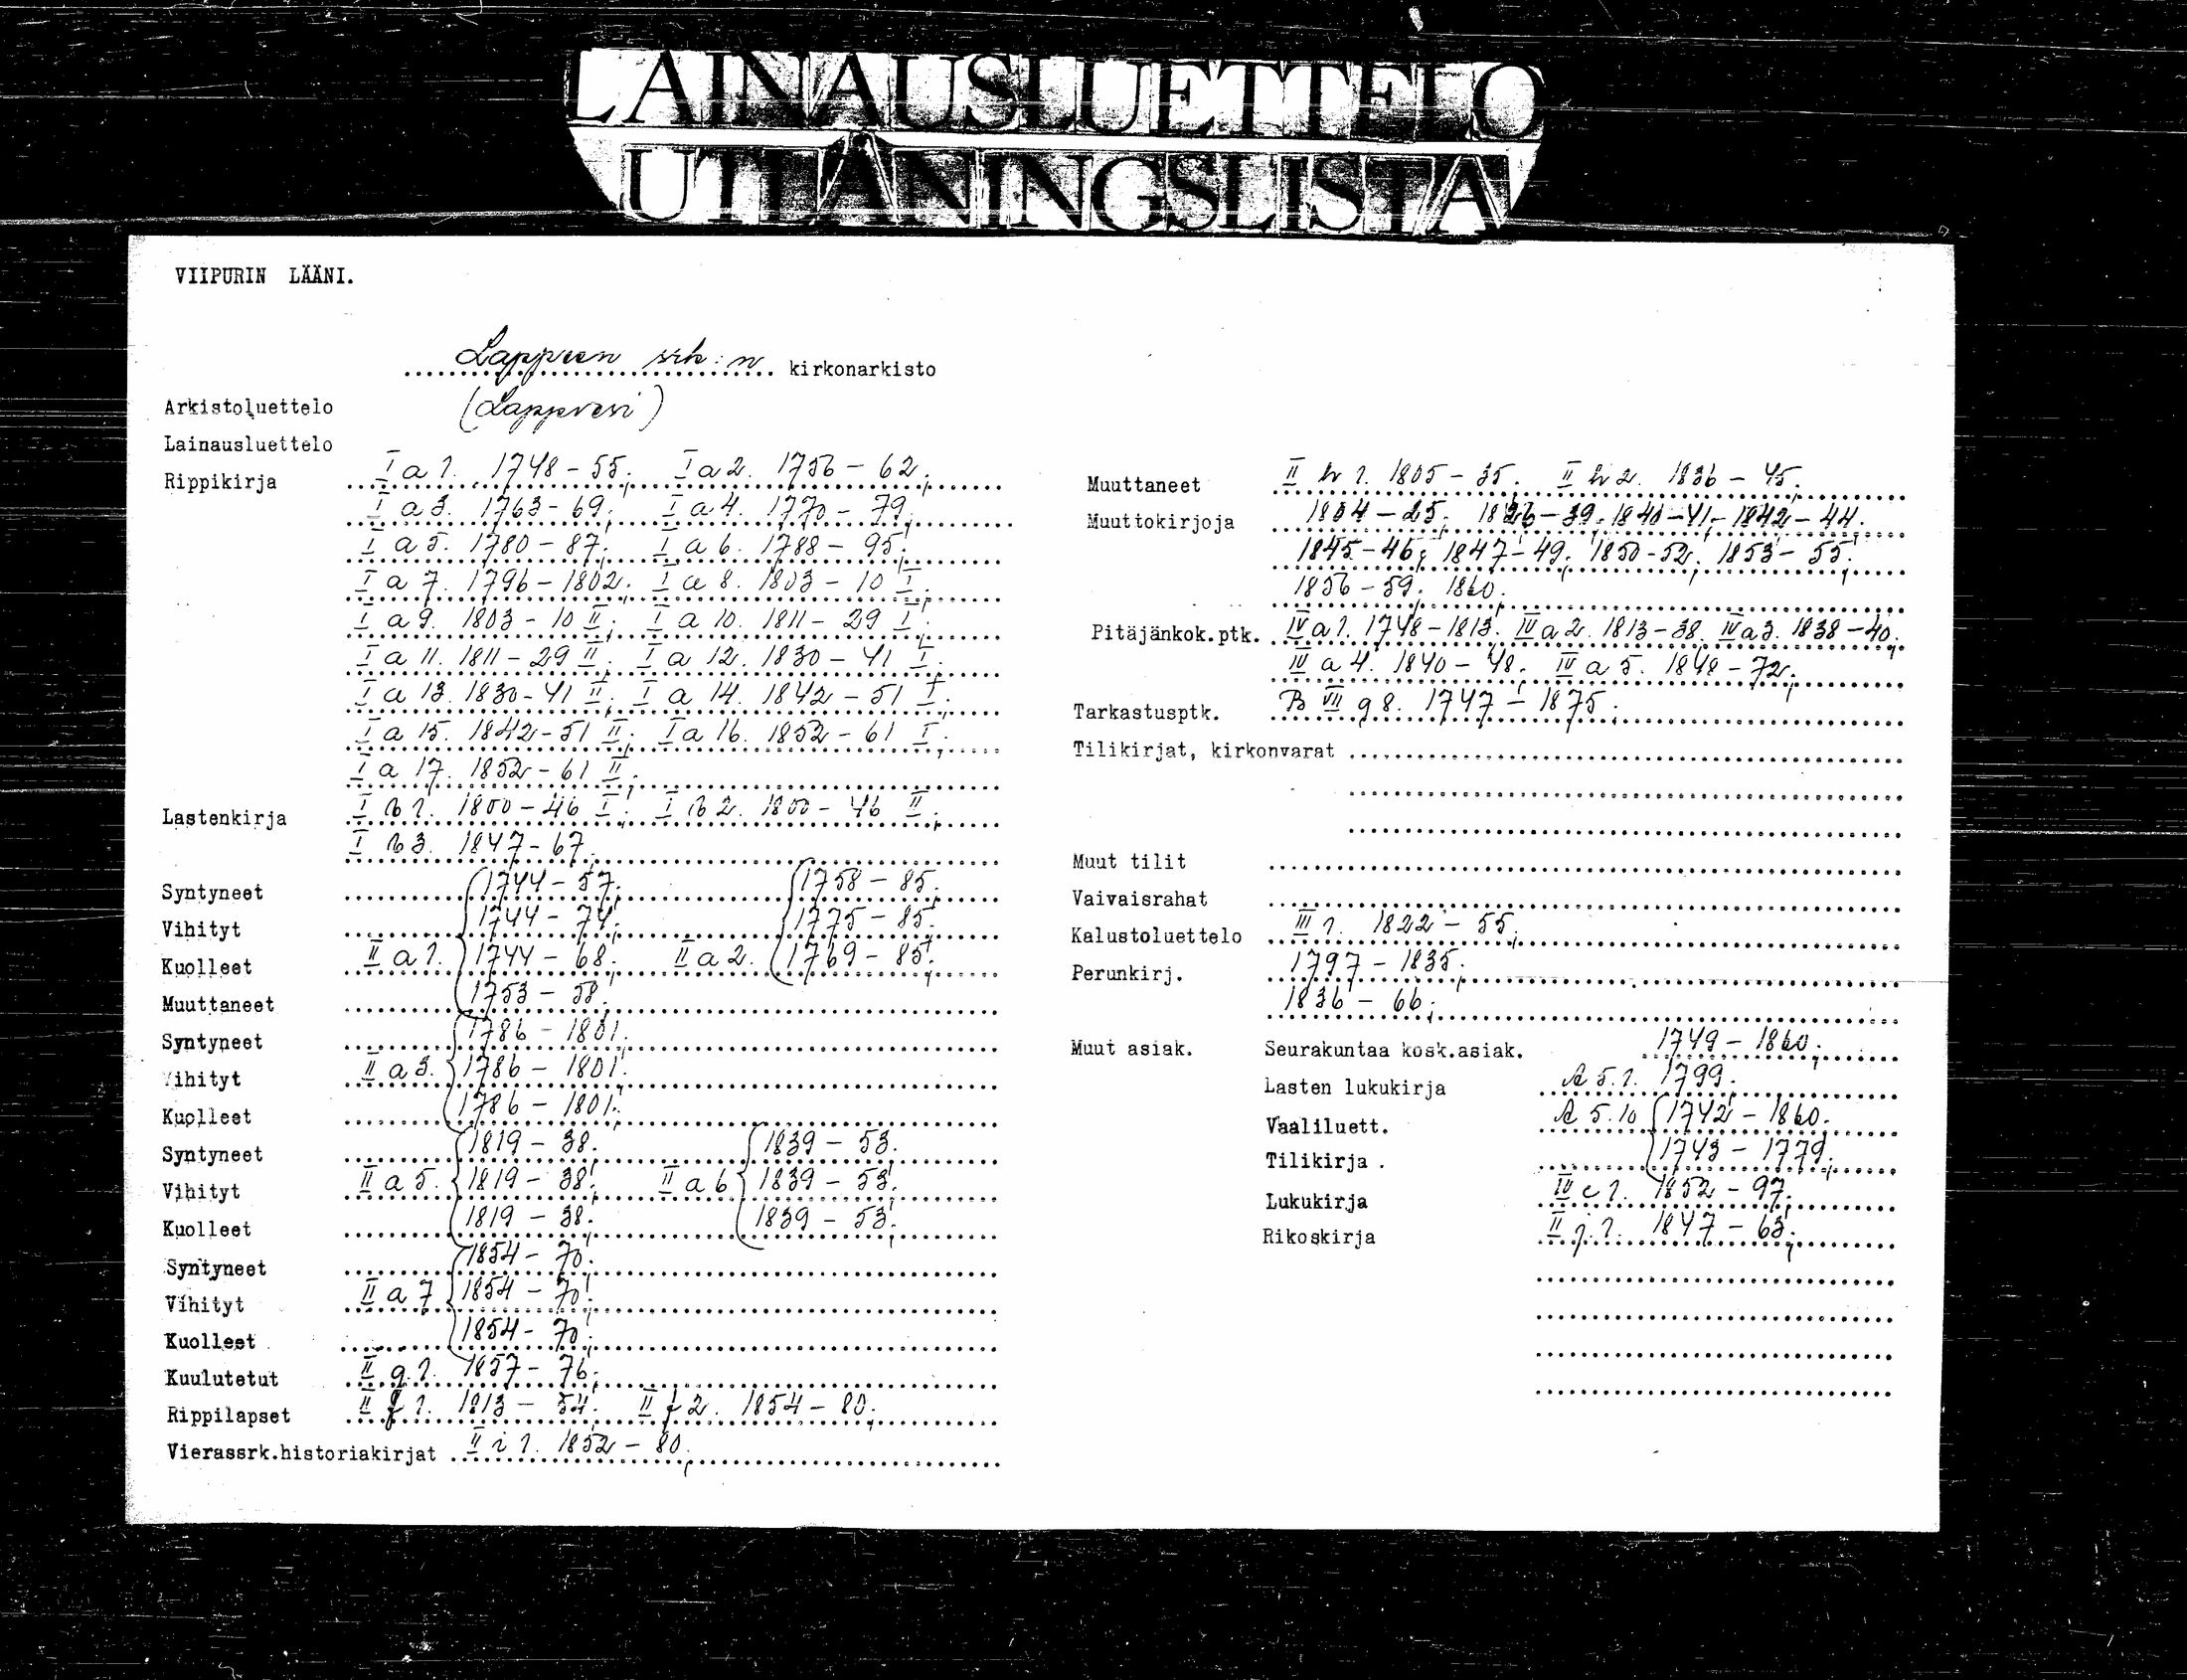 LAINAUSLUETTELO
UTLÅNINGSLISTA
VIIPURIN LÄÄNI.
Lappeen srk:n kirkonarkisto
Arkistoluettelo (Lappvesi)
Lainausluettelo
Rippikirja I a 1. 1748-55; I a 2. 1756-62;
I a 3. 1763-69; I a 4. 1770-79;
I a 5. 1780-87; I a 6. 1788-95;
I a 7. 1796-1802; I a 8. 1803-10 I;
I a 9. 1803-10 II; I a 10. 1811-29 I;
I a 11. 1811-29 II; I a 12. 1830-41 I;
I a 13. 1830-41 II; I a 14. 1842-51 I;
I a 15. 1842-51 II; I a 16. 1852-61 I;
I a 17. 1852-61 II;
Lastenkirja I b 1. 1800-46 I; I b 2. 1800-46 II;
I b 3. 1847-67;
Syntyneet 1744-57; 1758-85;
Vihityt 1744-74; 1775-85;
Kuolleet II a 1. 1744-68; II a 2. 1769-85;
Muuttaneet 1753-58;
Syntyneet 1786-1801;
Vihityt II a 3. 1786-1801;
Kuolleet 1786-1801;
Syntyneet 1819-38; 1839-53;
Vihityt II a 5. 1819-38; II a 6 1839-53;
Kuolleet 1819-38; 1839-53;
Syntyneet 1854-70;
Vihityt II a 7 1854-70;
Kuolleet 1854-70;
Kuulutetut II g 1. 1857-76;
Rippilapset II f 1. 1813-54; II f 2. 1854-80;
Vierassrk.historiakirjat II i 1. 1852-80;
Muuttaneet II b 1. 1805-35; II b 2. 1836-45;
Muuttokirjoja 1804-25; 1826-39; 1840-41; 1842-44;
1845-46; 1847-49; 1850-52; 1853-55;
1856-59; 1860;
Pitäjänkok.ptk. IV a 1. 1748-1813; IV a 2. 1813-38; IV a 3. 1838-40;
IV a 4. 1840-48; IV a 5. 1848-72;
Tarkastusptk. B VII g 8. 1747-1875;
Tilikirjat, kirkonvarat
Muut tilit
Vaivaisrahat
Kalustoluettelo III 1. 1822-55;
Perunkirj. 1797-1835;
1836-66;
Muut asiak. Seurakuntaa kosk.asiak. 1749-1860;
Lasten lukukirja A 5.1. 1799;
Vaaliluett. A 5.10 1742-1860;
Tilikirja. 1743-1779;
Lukukirja IV c 1. 1852-97;
Rikoskirja II j 1. 1847-63;